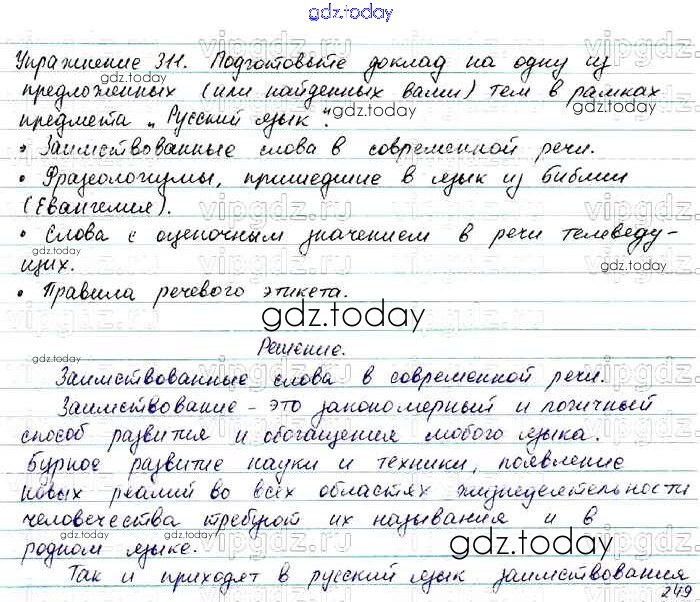 gdz.today
Упражнение 311. Подготовьте доклад на одну из
предложенных (или найденных вами) тем в рамках
предмета „Русский язык".
• Заимствованные слова в современной речи.
• Фразеологизмы, пришедшие в язык из Библии
(Евангелия).
• Слова с оценочным значением в речи телеведу-
щих.
• Правила речевого этикета.
gdz.today
Решение.
Заимствованные слова в современной речи.
Заимствование - это закономерный и логичный
способ развития и обогащения любого языка.
Бурное развитие науки и техники, появление
новых реалий во всех областях жизнедеятельности
человечества требуют их называния и в
родном языке.
gdz.today
Так и приходят в русский язык заимствования
249